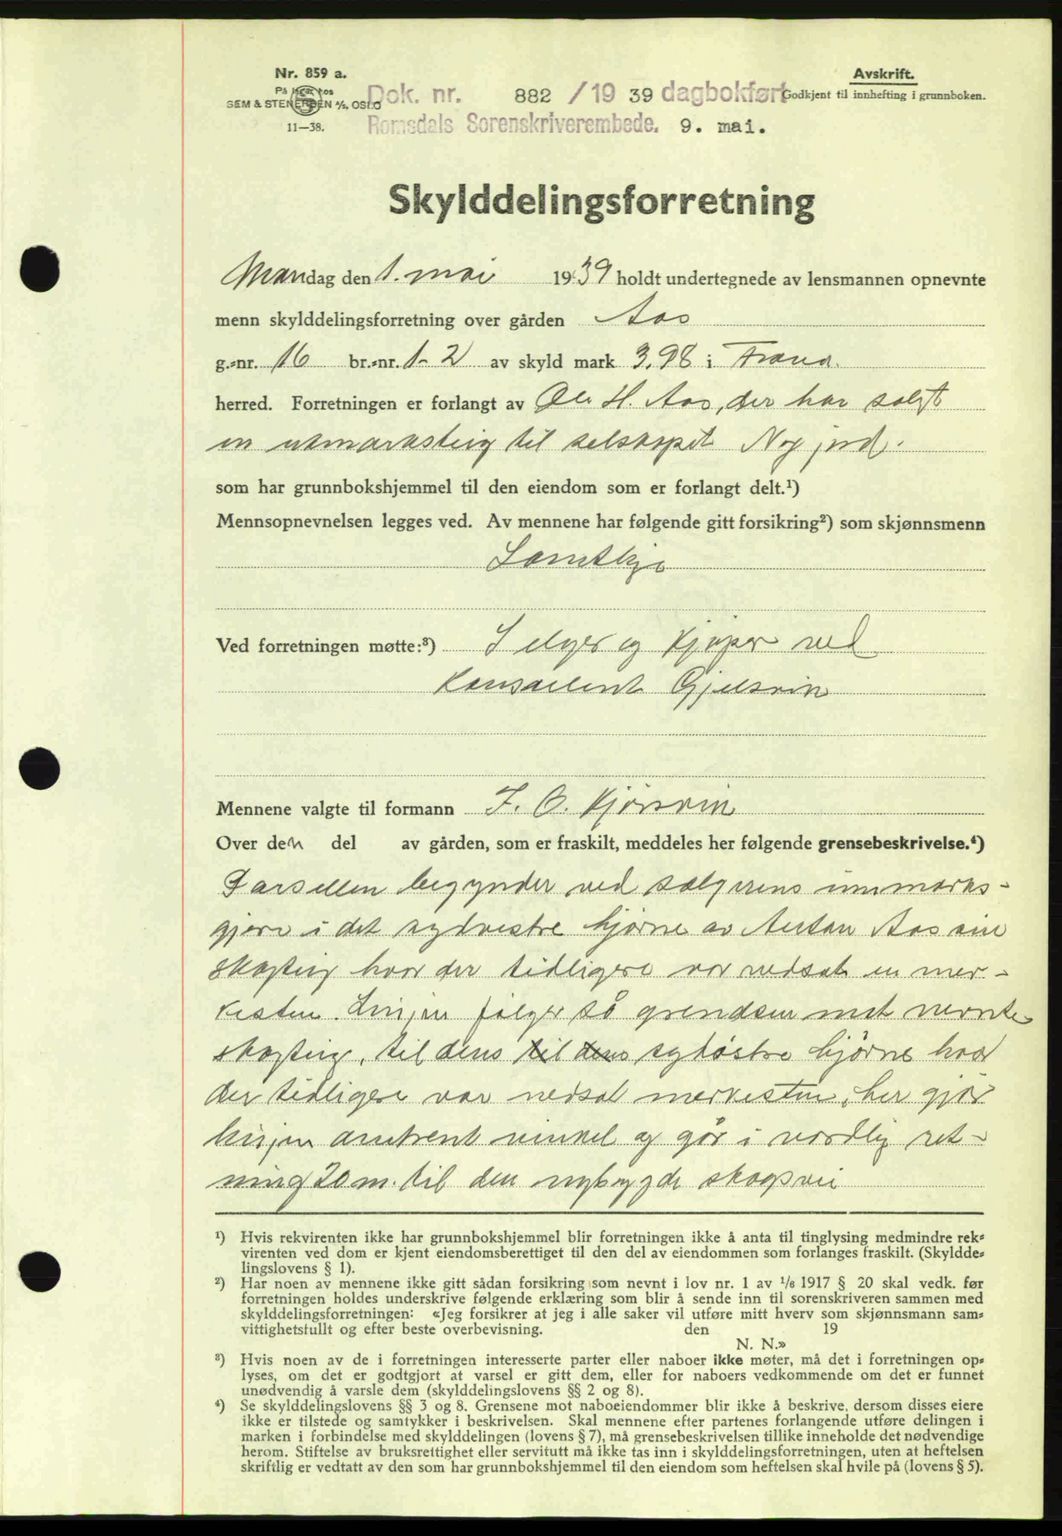 Nr. 859 a.
På lager hos
SEM & STENERSEN A/S, OSLO
11—38.
Dok. nr. 882 / 19 39 dagbokført
Romsdals Sorenskriverembede. 9. mai.
Avskrift.
Godkjent til innhefting i grunnboken.
Skylddelingsforretning
Mandag den 1. mai 1939 holdt undertegnede av lensmannen opnevnte
menn skylddelingsforretning over gården Aas
g.-nr. 16 br.-nr. 1-2 av skyld mark 3,98 i Fræna
herred. Forretningen er forlangt av Ole H. Aas, der har solgt
en utmarksteig til selskapet Ny jord.
som har grunnbokshjemmel til den eiendom som er forlangt delt.¹)
Mennsopnevnelsen legges ved. Av mennene har følgende gitt forsikring²) som skjønnsmenn
Samtlige
Ved forretningen møtte:³) Selger og Kjøper ved
Konsulent Gjelsvik
Mennene valgte til formann J. O. Kjørsvik
Over den del av gården, som er fraskilt, meddeles her følgende grensebeskrivelse.⁴)
Parsellen begynder ved sælgerens innmarks-
gjere i det sydvestre hjørne av Anton Aas sin
skogteig hvor der tidligere var nedsat en mer-
kesten. Linjen følger så grendsen mot nevnte
skogteig, til dens til dens sydøstre hjørne hvor
der tidligere var nedsat merkesten, her gjør
linjen omtrent vinkel og går i nordlig ret-
ning 20 m. til den nybygde skogsvei
¹) Hvis rekvirenten ikke har grunnbokshjemmel blir forretningen ikke å anta til tinglysing medmindre rek-
virenten ved dom er kjent eiendomsberettiget til den del av eiendommen som forlanges fraskilt. (Skyldde-
lingslovens § 1).
²) Har noen av mennene ikke gitt sådan forsikring som nevnt i lov nr. 1 av 1/6 1917 § 20 skal vedk. før
forretningen holdes underskrive følgende erklæring som blir å sende inn til sorenskriveren sammen med
skylddelingsforretningen: «Jeg forsikrer at jeg i alle saker vil utføre mitt hverv som skjønnsmann sam-
vittighetsfullt og efter beste overbevisning. den 19
N. N.»
³) Hvis noen av de i forretningen interesserte parter eller naboer ikke møter, må det i forretningen op-
lyses, om det er godtgjort at varsel er gitt dem, eller for naboers vedkommende om det er funnet
unødvendig å varsle dem (skylddelingslovens §§ 2 og 8).
⁴) Se skylddelingslovens §§ 3 og 8. Grensene mot naboeiendommer blir ikke å beskrive, dersom disses eiere
ikke er tilstede og samtykker i beskrivelsen. Skal mennene efter partenes forlangende utføre delingen i
marken i forbindelse med skylddelingen (lovens § 7), må grensebeskrivelsen tillike inneholde det nødvendige
herom. Stiftelse av bruksrettighet eller servitutt må ikke tas inn i skylddelingsforretningen, uten at heftelsen
skriftlig er vedtatt av den som har grunnbokshjemmel til den eiendom som heftelsen skal hvile på (lovens § 5).